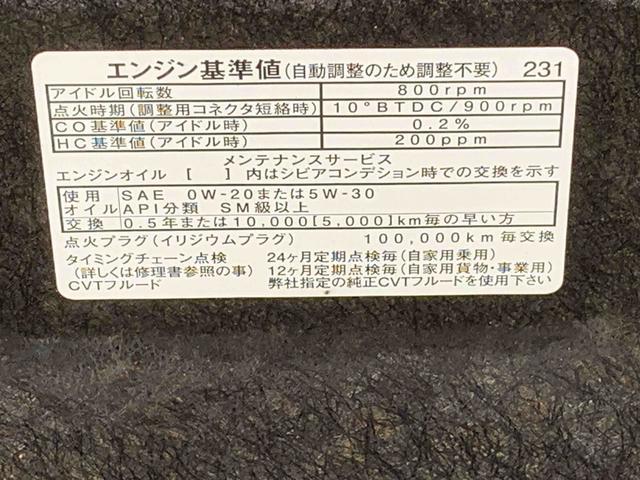 エンジン基準値(自動調整のため調整不要) 231
アイドル回転数 800rpm
点火時期(調整用コネクタ短絡時) 10°BTDC/900rpm
CO基準値(アイドル時) 0.2%
HC基準値(アイドル時) 200ppm
メンテナンスサービス
エンジンオイル [ ] 内はシビアコンデション時での交換を示す
使用 SAE 0W-20または5W-30
オイル API分類 SM級以上
交換 0.5年または10,000[5,000]km毎の早い方
点火プラグ(イリジウムプラグ) 100,000km毎交換
タイミングチェーン点検 24ヶ月定期点検毎(自家用乗用)
(詳しくは修理書参照の事) 12ヶ月定期点検毎(自家用貨物・事業用)
CVTフルード 弊社指定の純正CVTフルードを使用下さい